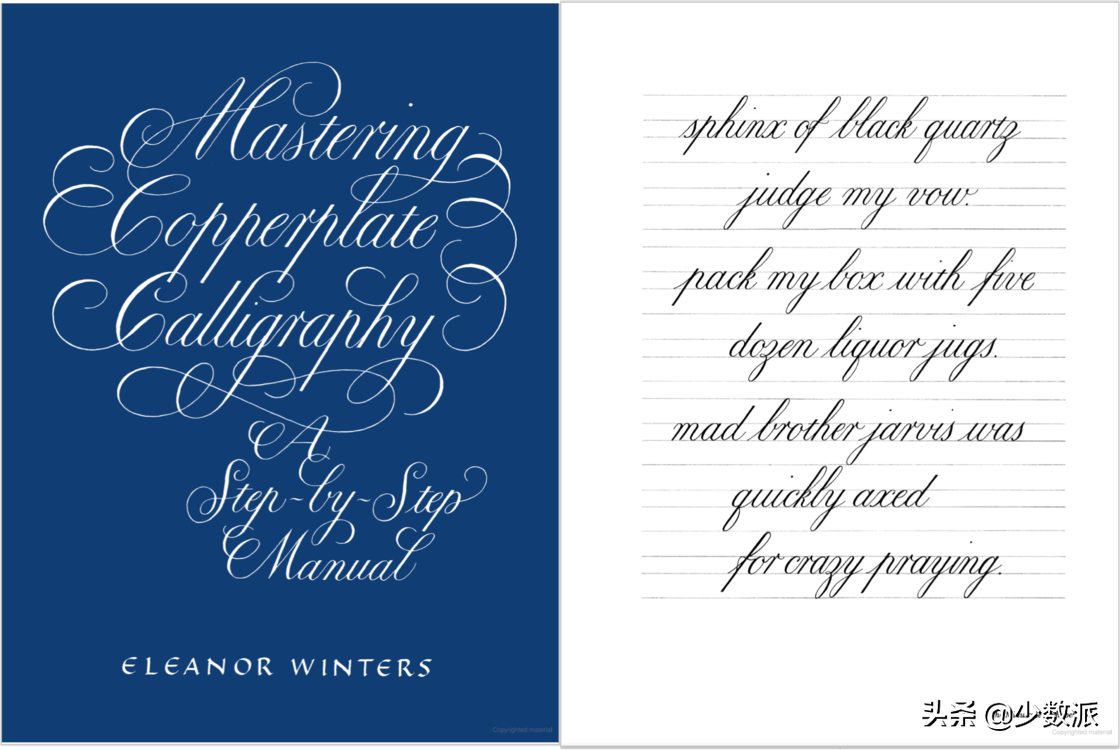 Mastering
Copperplate
Calligraphy
A
Step-by-Step
Manual
ELEANOR WINTERS
Copyrighted material
sphinx of black quartz
judge my vow.
pack my box with five
dozen liquor jugs.
mad brother jarvis was
quickly axed
for crazy praying.
头条 @少数派
Copyrighted material